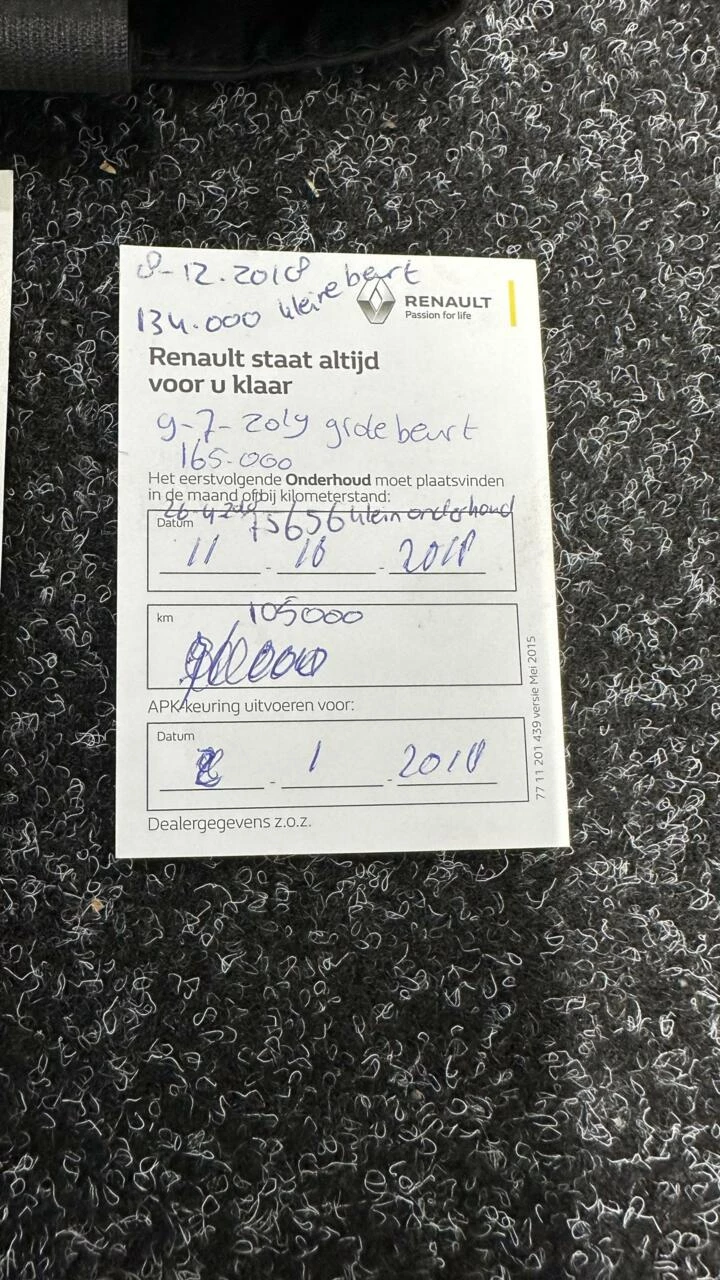 8-12.2018 kleine beurt
134.000
RENAULT
Passion for life
Renault staat altijd
voor u klaar
9-7-2019 grote beurt
165.000
Het eerstvolgende Onderhoud moet plaatsvinden
in de maand of bij kilometerstand:
26-4- 75656 klein onderhoud
Datum
11 - 10 - 2018
km
105000
APK-keuring uitvoeren voor:
Datum
- 1 - 2018
Dealergegevens z.o.z.
77 11 201 439 versie Mei 2015